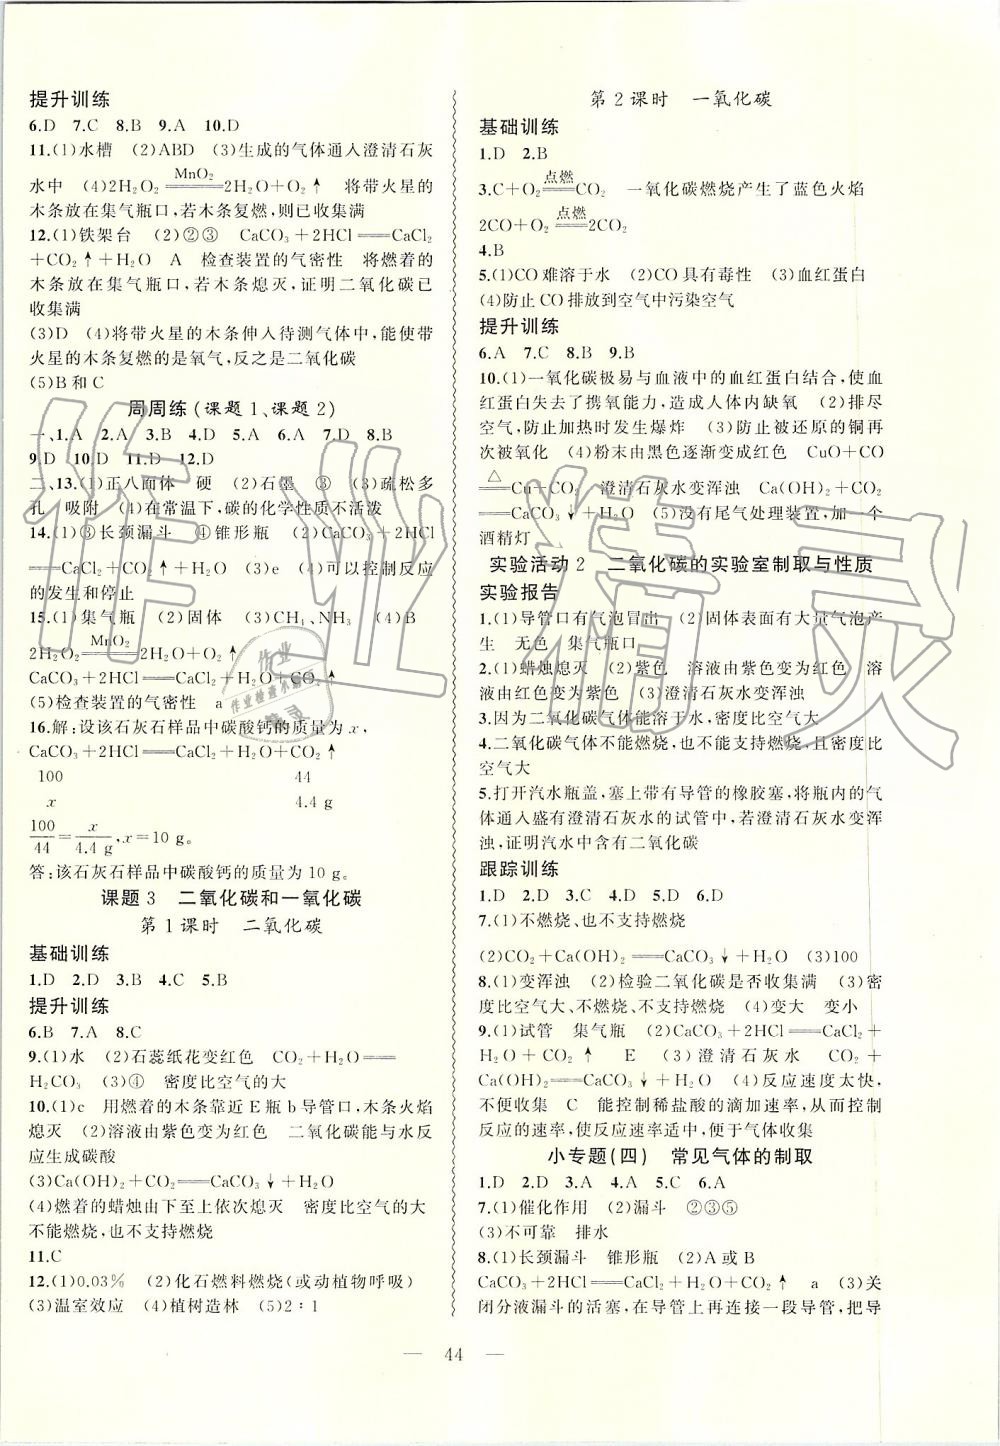 提升训练
6.D　7.C　8.B　9.A　10.D
11.(1)水槽　(2)ABD　(3)生成的气体通入澄清石灰
水中　(4)2H₂O₂ =MnO₂= 2H₂O+O₂↑　将带火星的
木条放在集气瓶口,若木条复燃,则已收集满
12.(1)铁架台　(2)②③　CaCO₃+2HCl══CaCl₂
+CO₂↑+H₂O　A　检查装置的气密性　将燃着的
木条放在集气瓶口,若木条熄灭,证明二氧化碳已
收集满
(3)D　(4)将带火星的木条伸入待测气体中,能使带
火星的木条复燃的是氧气,反之是二氧化碳
(5)B和C
周周练(课题1、课题2)
一、1.A　2.A　3.B　4.D　5.A　6.A　7.D　8.B
9.D　10.D　11.D　12.D
二、13.(1)正八面体　硬　(2)石墨　③　(3)疏松多
孔　吸附　(4)在常温下,碳的化学性质不活泼
14.(1)③长颈漏斗　④锥形瓶　(2)CaCO₃+2HCl
══CaCl₂+CO₂↑+H₂O　(3)e　(4)可以控制反应
的发生和停止
15.(1)集气瓶　(2)固体　(3)CH₄、NH₃　(4)B
2H₂O₂ =MnO₂= 2H₂O+O₂↑
CaCO₃+2HCl══CaCl₂+H₂O+CO₂↑
(5)检查装置的气密性　a
16.解:设该石灰石样品中碳酸钙的质量为x,
CaCO₃+2HCl══CaCl₂+H₂O+CO₂↑
100　44
x　4.4 g
100/44=x/4.4 g,x=10 g。
答:该石灰石样品中碳酸钙的质量为10 g。
课题3　二氧化碳和一氧化碳
第1课时　二氧化碳
基础训练
1.D　2.D　3.B　4.C　5.B
提升训练
6.B　7.A　8.C
9.(1)水　(2)石蕊纸花变红色　CO₂+H₂O══
H₂CO₃　(3)④　密度比空气的大
10.(1)c　用燃着的木条靠近E瓶b导管口,木条火焰
熄灭　(2)溶液由紫色变为红色　二氧化碳能与水反
应生成碳酸
(3)Ca(OH)₂+CO₂══CaCO₃↓+H₂O
(4)燃着的蜡烛由下至上依次熄灭　密度比空气的大
不能燃烧,也不支持燃烧
11.C
12.(1)0.03%　(2)化石燃料燃烧(或动植物呼吸)
(3)温室效应　(4)植树造林　(5)2∶1
第2课时　一氧化碳
基础训练
1.D　2.B
3.C+O₂ =点燃= CO₂　一氧化碳燃烧产生了蓝色火焰
2CO+O₂ =点燃= 2CO₂
4.B
5.(1)CO难溶于水　(2)CO具有毒性　(3)血红蛋白
(4)防止CO排放到空气中污染空气
提升训练
6.A　7.C　8.B　9.B
10.(1)一氧化碳极易与血液中的血红蛋白结合,使血
红蛋白失去了携氧能力,造成人体内缺氧　(2)排尽
空气,防止加热时发生爆炸　(3)防止被还原的铜再
次被氧化　(4)粉末由黑色逐渐变成红色　CuO+CO
=△= Cu+CO₂　澄清石灰水变浑浊　Ca(OH)₂+CO₂
══CaCO₃↓+H₂O　(5)没有尾气处理装置,加一个
酒精灯
实验活动2　二氧化碳的实验室制取与性质
实验报告
1.(1)导管口有气泡冒出　(2)固体表面有大量气泡产
生　无色　集气瓶口
2.(1)蜡烛熄灭　(2)紫色　溶液由紫色变为红色　溶
液由红色变为紫色　(3)澄清石灰水变浑浊
3.因为二氧化碳气体能溶于水,密度比空气大
4.二氧化碳气体不能燃烧,也不能支持燃烧,且密度比
空气大
5.打开汽水瓶盖,塞上带有导管的橡胶塞,将瓶内的气
体通入盛有澄清石灰水的试管中,若澄清石灰水变浑
浊,证明汽水中含有二氧化碳
跟踪训练
1.D　2.D　3.D　4.D　5.B　6.D
7.(1)不燃烧、也不支持燃烧
(2)CO₂+Ca(OH)₂══CaCO₃↓+H₂O　(3)100
8.(1)变浑浊　(2)检验二氧化碳是否收集满　(3)密
度比空气大、不燃烧、不支持燃烧　(4)变大　变小
9.(1)试管　集气瓶　(2)CaCO₃+2HCl══CaCl₂+
H₂O+CO₂↑　E　(3)澄清石灰水　CO₂+
Ca(OH)₂══CaCO₃↓+H₂O　(4)反应速度太快,
不便收集　C　能控制稀盐酸的滴加速率,从而控制
反应的速率,使反应速率适中,便于气体收集
小专题(四)　常见气体的制取
1.D　2.D　3.A　4.A　5.C　6.A
7.(1)催化作用　(2)漏斗　②③⑤
(3)不可靠　排水
8.(1)长颈漏斗　锥形瓶　(2)A或B
CaCO₃+2HCl══CaCl₂+H₂O+CO₂↑　a　(3)关
闭分液漏斗的活塞,在导管上再连接一段导管,把导
— 44 —
作业精灵
作业
作业检查小精灵
精灵